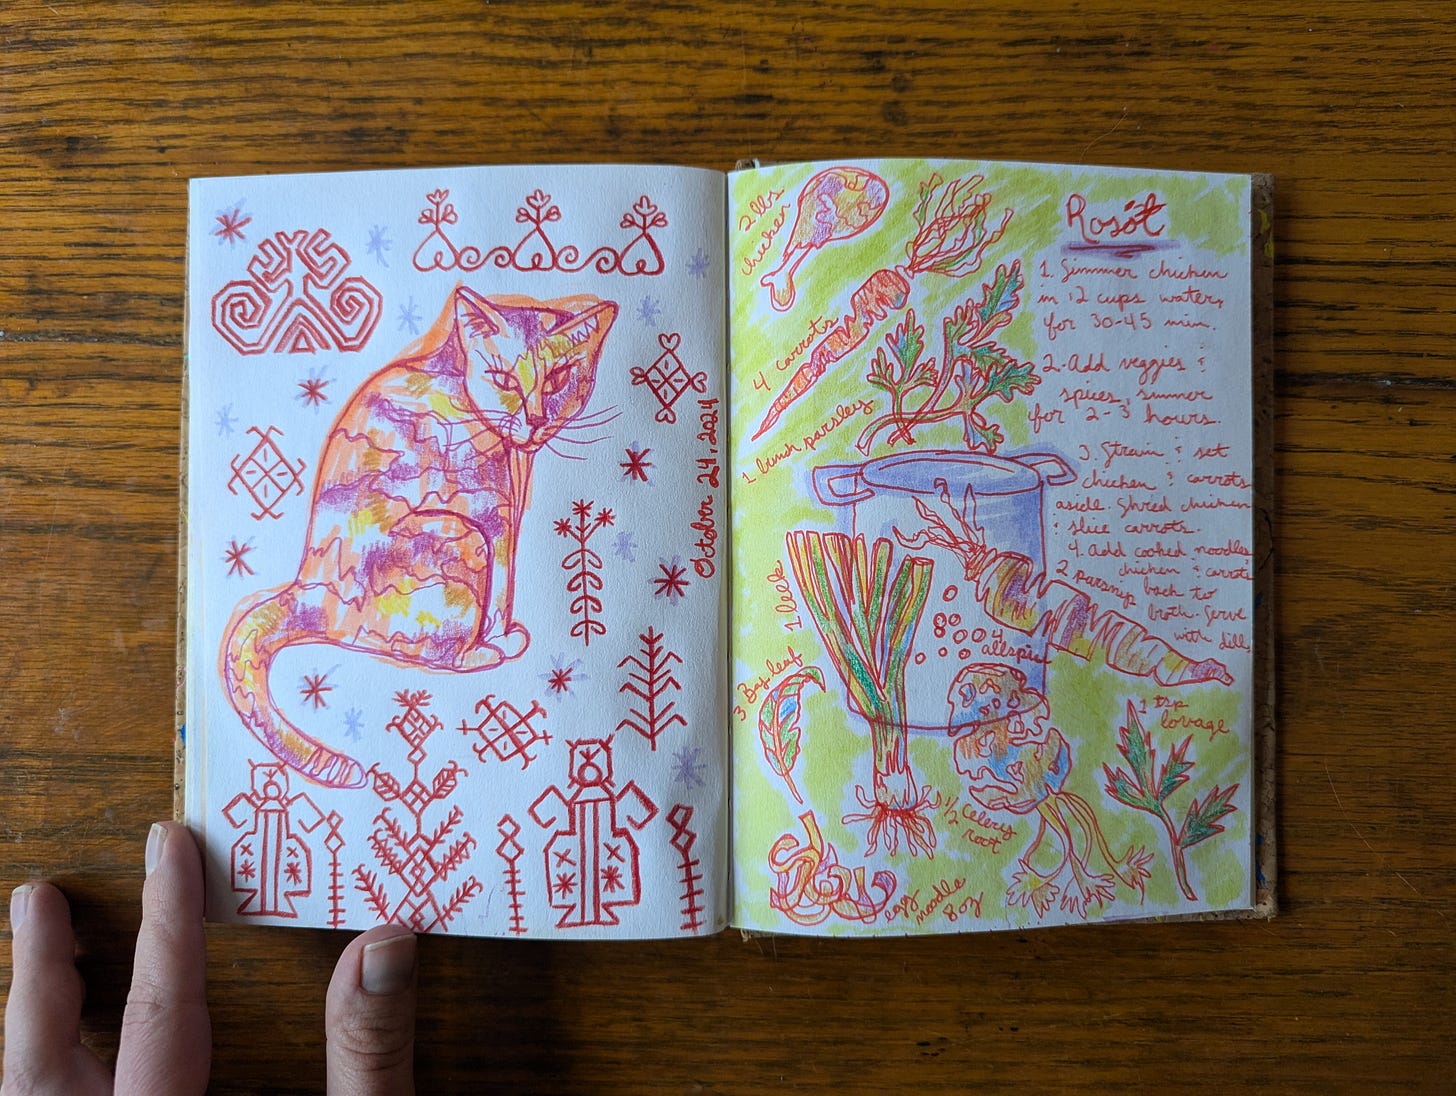 October 24, 2024
2 lbs
chicken
4 carrots
1 bunch parsley
1 leek
3 Bay leaf
egg
noodle
8oz
1/2 celery
root
4
allspice
2 parsnip
1 tsp
lovage
Rosół
1. Simmer chicken
in 12 cups water,
for 30-45 min.
2. Add veggies &
spices, simmer
for 2-3 hours.
3. Strain & set
chicken & carrots
aside. Shred chicken
& slice carrots.
4. Add cooked noodles,
chicken & carrots
back to
broth. Serve
with dill.